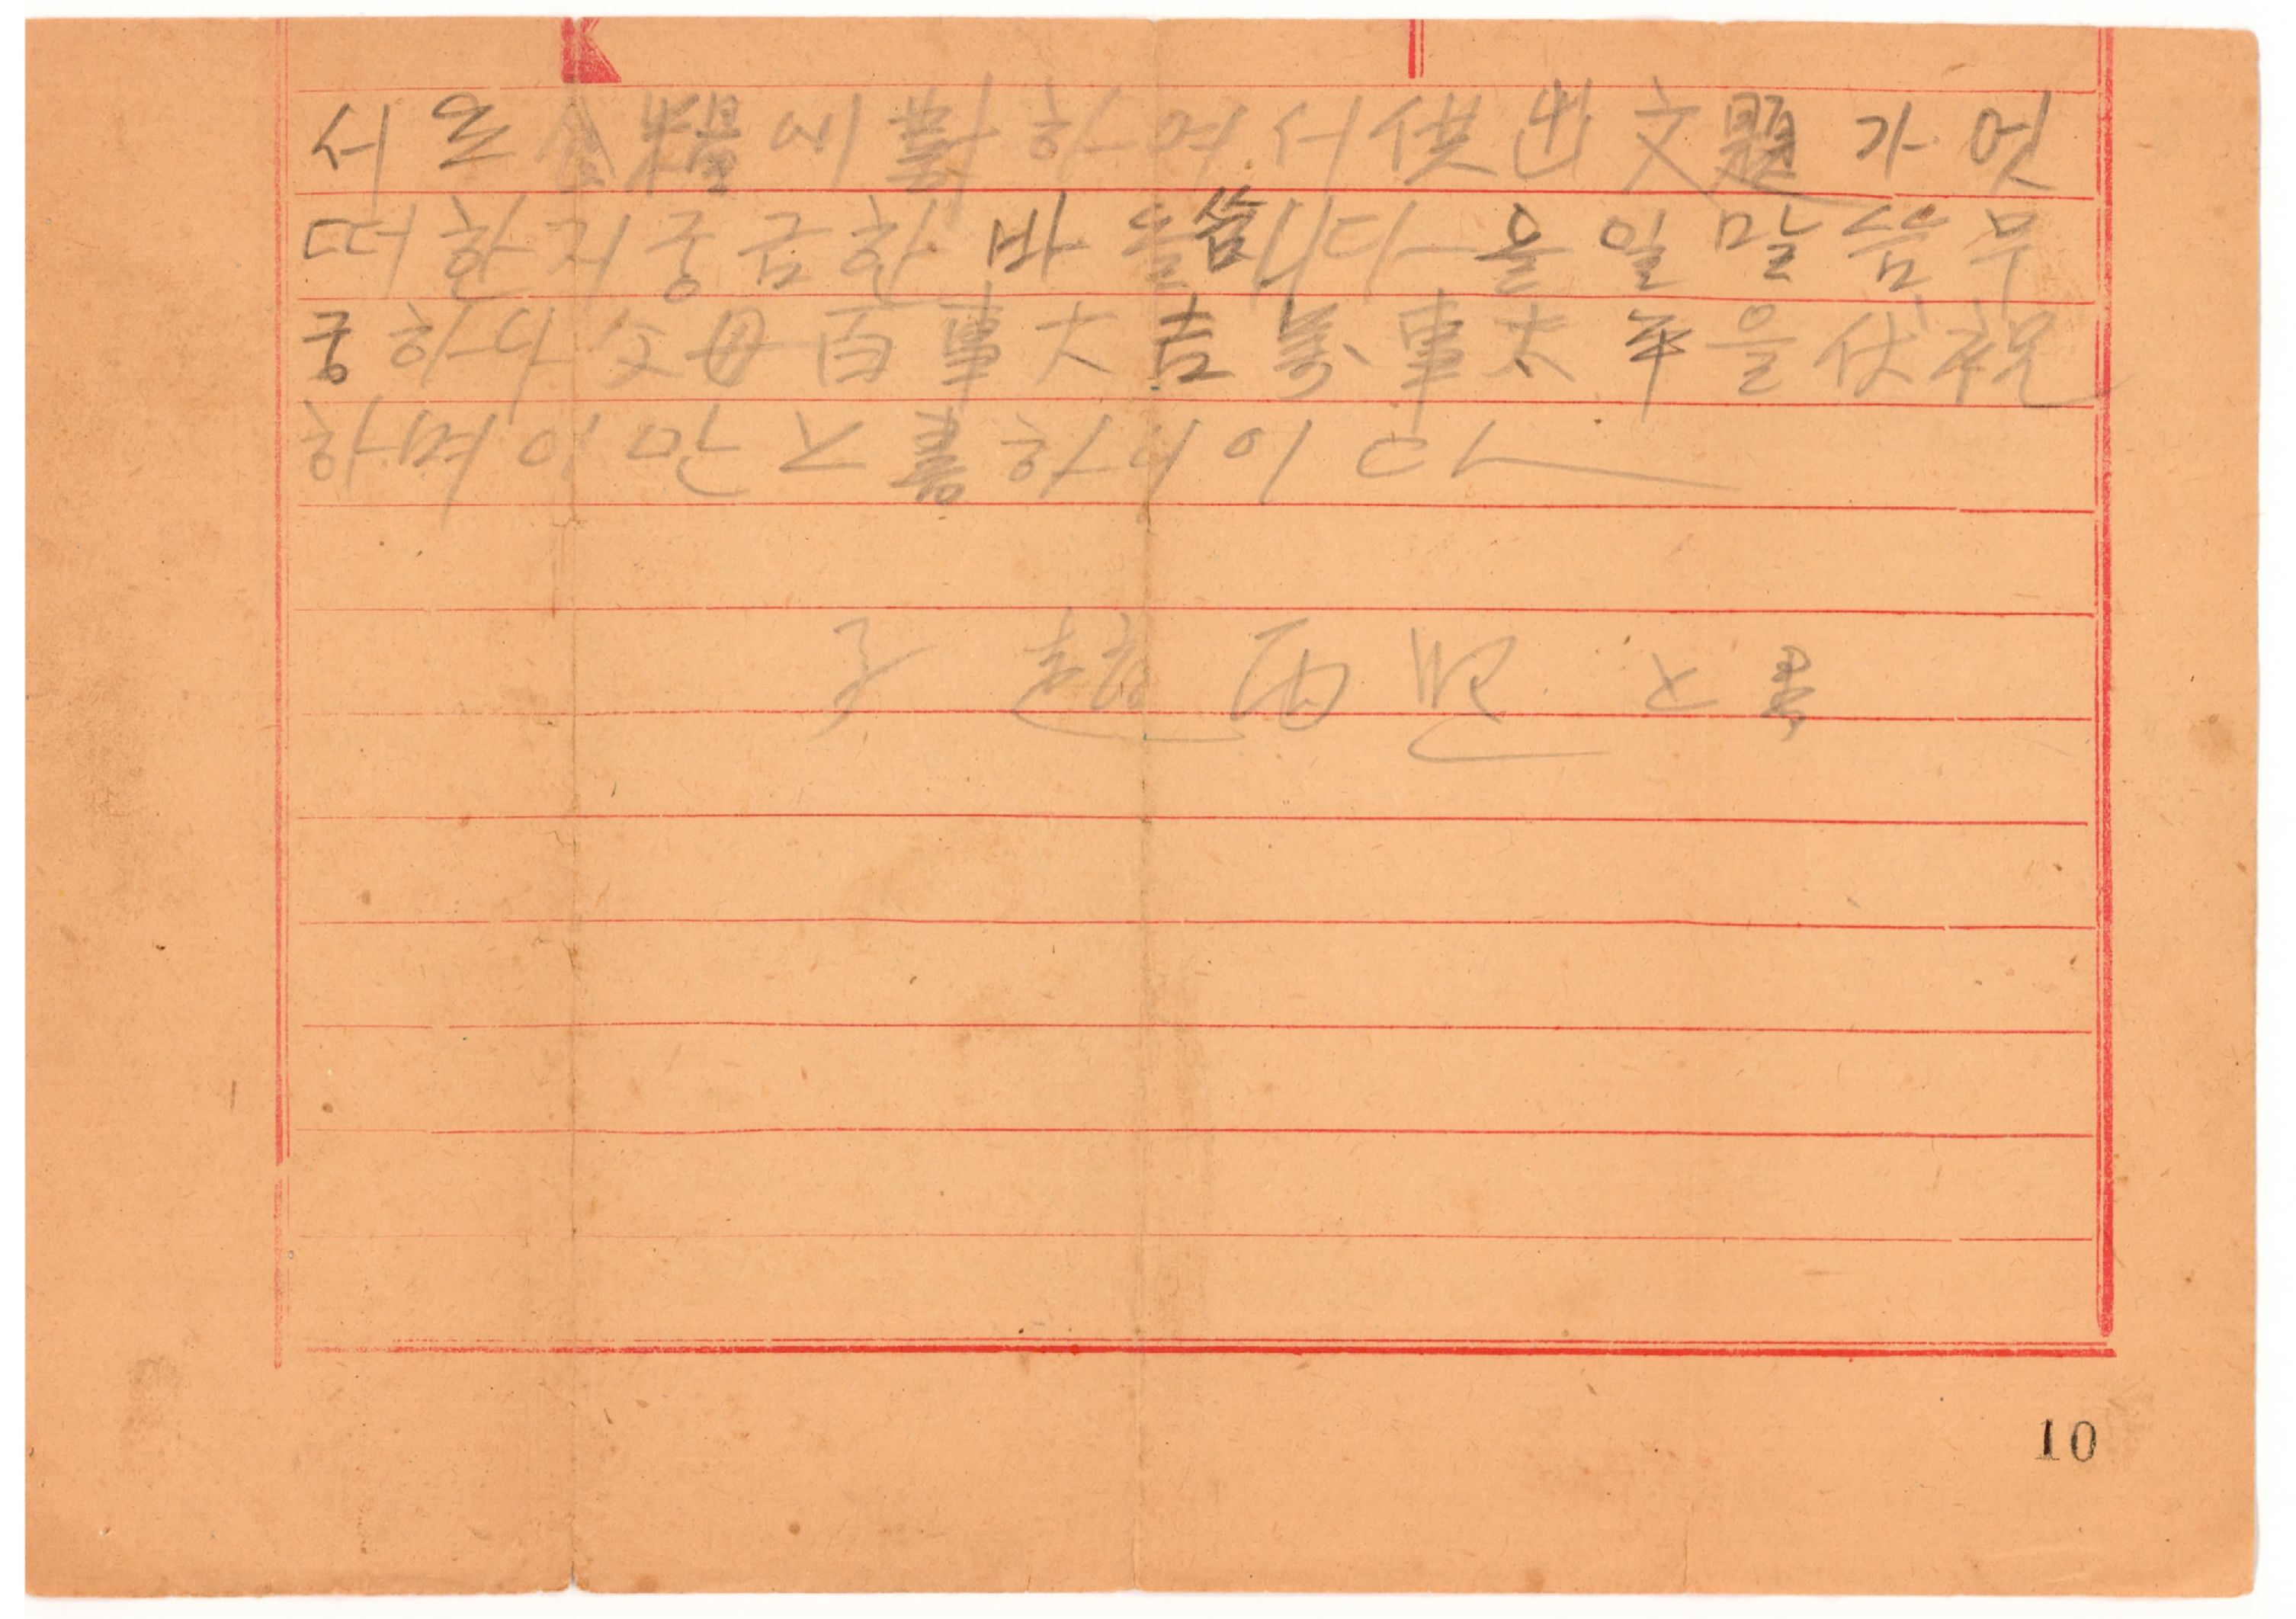 서로 食糧에 對하여서 供出文題가 엇
떠한지 궁금한 바 올씀니다 올일 말씀 무
궁하나 父母百事大吉 萬事太平을 伏祝
하며 이만 不書하나이다
不書
10